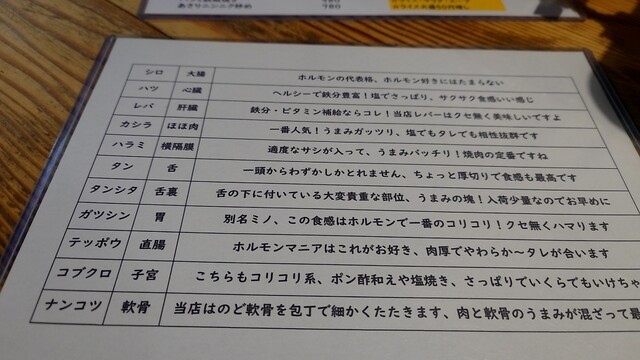 あさりニンニク炒め 780
シロ 大腸 ホルモンの代表格、ホルモン好きにはたまらない
ハツ 心臓 ヘルシーで鉄分豊富！塩でさっぱり、サクサク食感いい感じ
レバ 肝臓 鉄分・ビタミン補給ならコレ！当店レバーはクセ無く美味しいですよ
カシラ ほほ肉 一番人気！うまみガッツリ、塩でもタレでも相性抜群です
ハラミ 横隔膜 適度なサシが入って、うまみバッチリ！焼肉の定番ですね
タン 舌 一頭からわずかしかとれません、ちょっと厚切りで食感も最高です
タンシタ 舌裏 舌の下に付いている大変貴重な部位、うまみの塊！入荷少量なのでお早めに
ガツシン 胃 別名ミノ、この食感はホルモンで一番のコリコリ！クセ無くハマります
テッポウ 直腸 ホルモンマニアはこれがお好き、肉厚でやわらか～タレが合います
コブクロ 子宮 こちらもコリコリ系、ポン酢和えや塩焼き、さっぱりでいくらでもいけちゃ
ナンコツ 軟骨 当店はのど軟骨を包丁で細かくたたきます、肉と軟骨のうまみが混ざって最